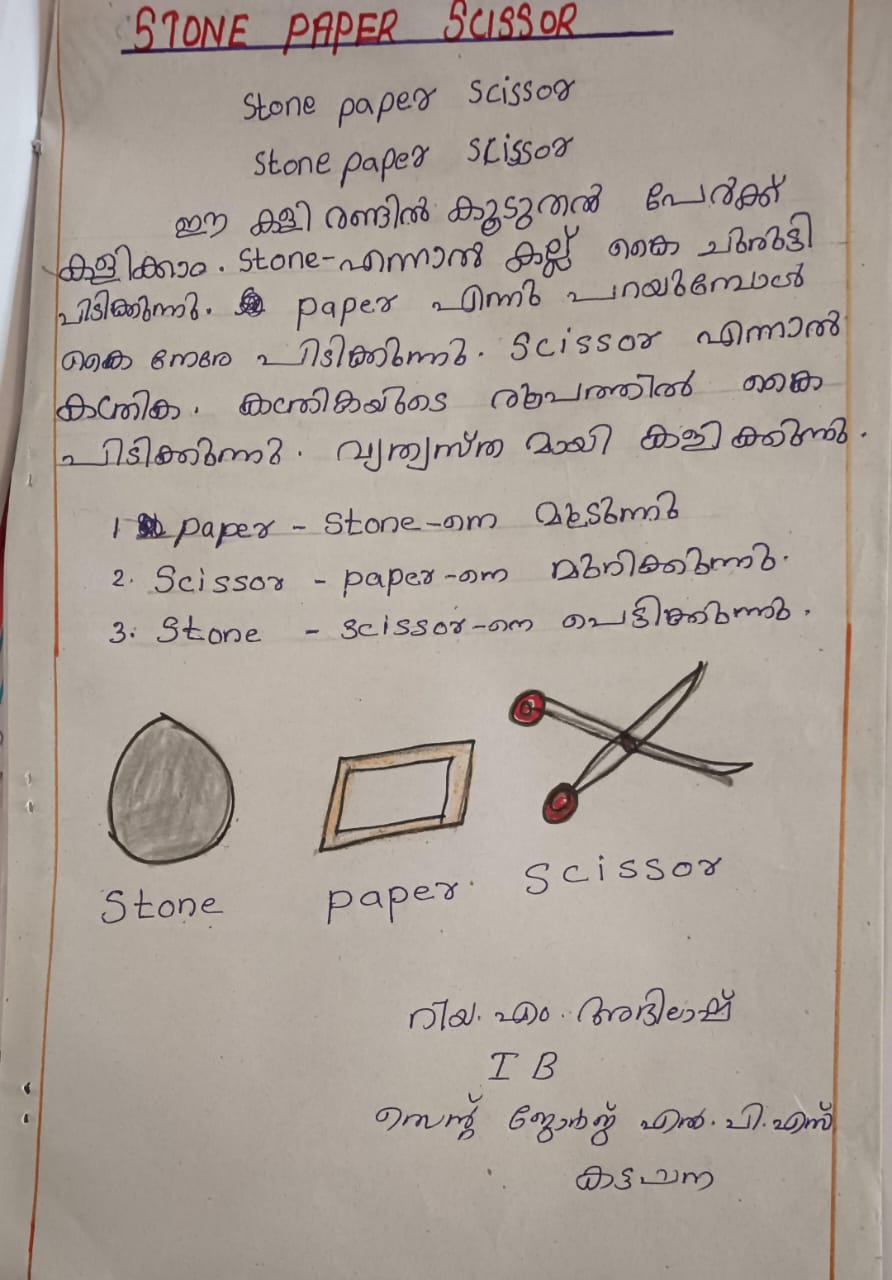 STONE PAPER SCISSOR
Stone paper scissor
Stone paper scissor
ഈ കളി രണ്ടിൽ കൂടുതൽ പേർക്ക്
കളിക്കാം. Stone-എന്നാൽ കല്ല് കൈ ചുരുട്ടി
പിടിക്കുന്നു. paper എന്നു പറയുമ്പോൾ
കൈ നേരേ പിടിക്കുന്നു. Scissor എന്നാൽ
കത്രിക. കത്രികയുടെ രൂപത്തിൽ കൈ
പിടിക്കുന്നു. വ്യത്യസ്ത മായി കളി ക്കുന്നു.
1 paper - Stone-നെ മൂടുന്നു
2. Scissor - paper-നെ മുറിക്കുന്നു.
3. Stone - scissor-നെ പൊട്ടിക്കുന്നു.
Stone paper. Scissor
റിയ. എം. അഭിലാഷ്
I B
സെന്റ് ജോർജ്ജ് എൽ. പി. എസ്
കട്ടച്ചന